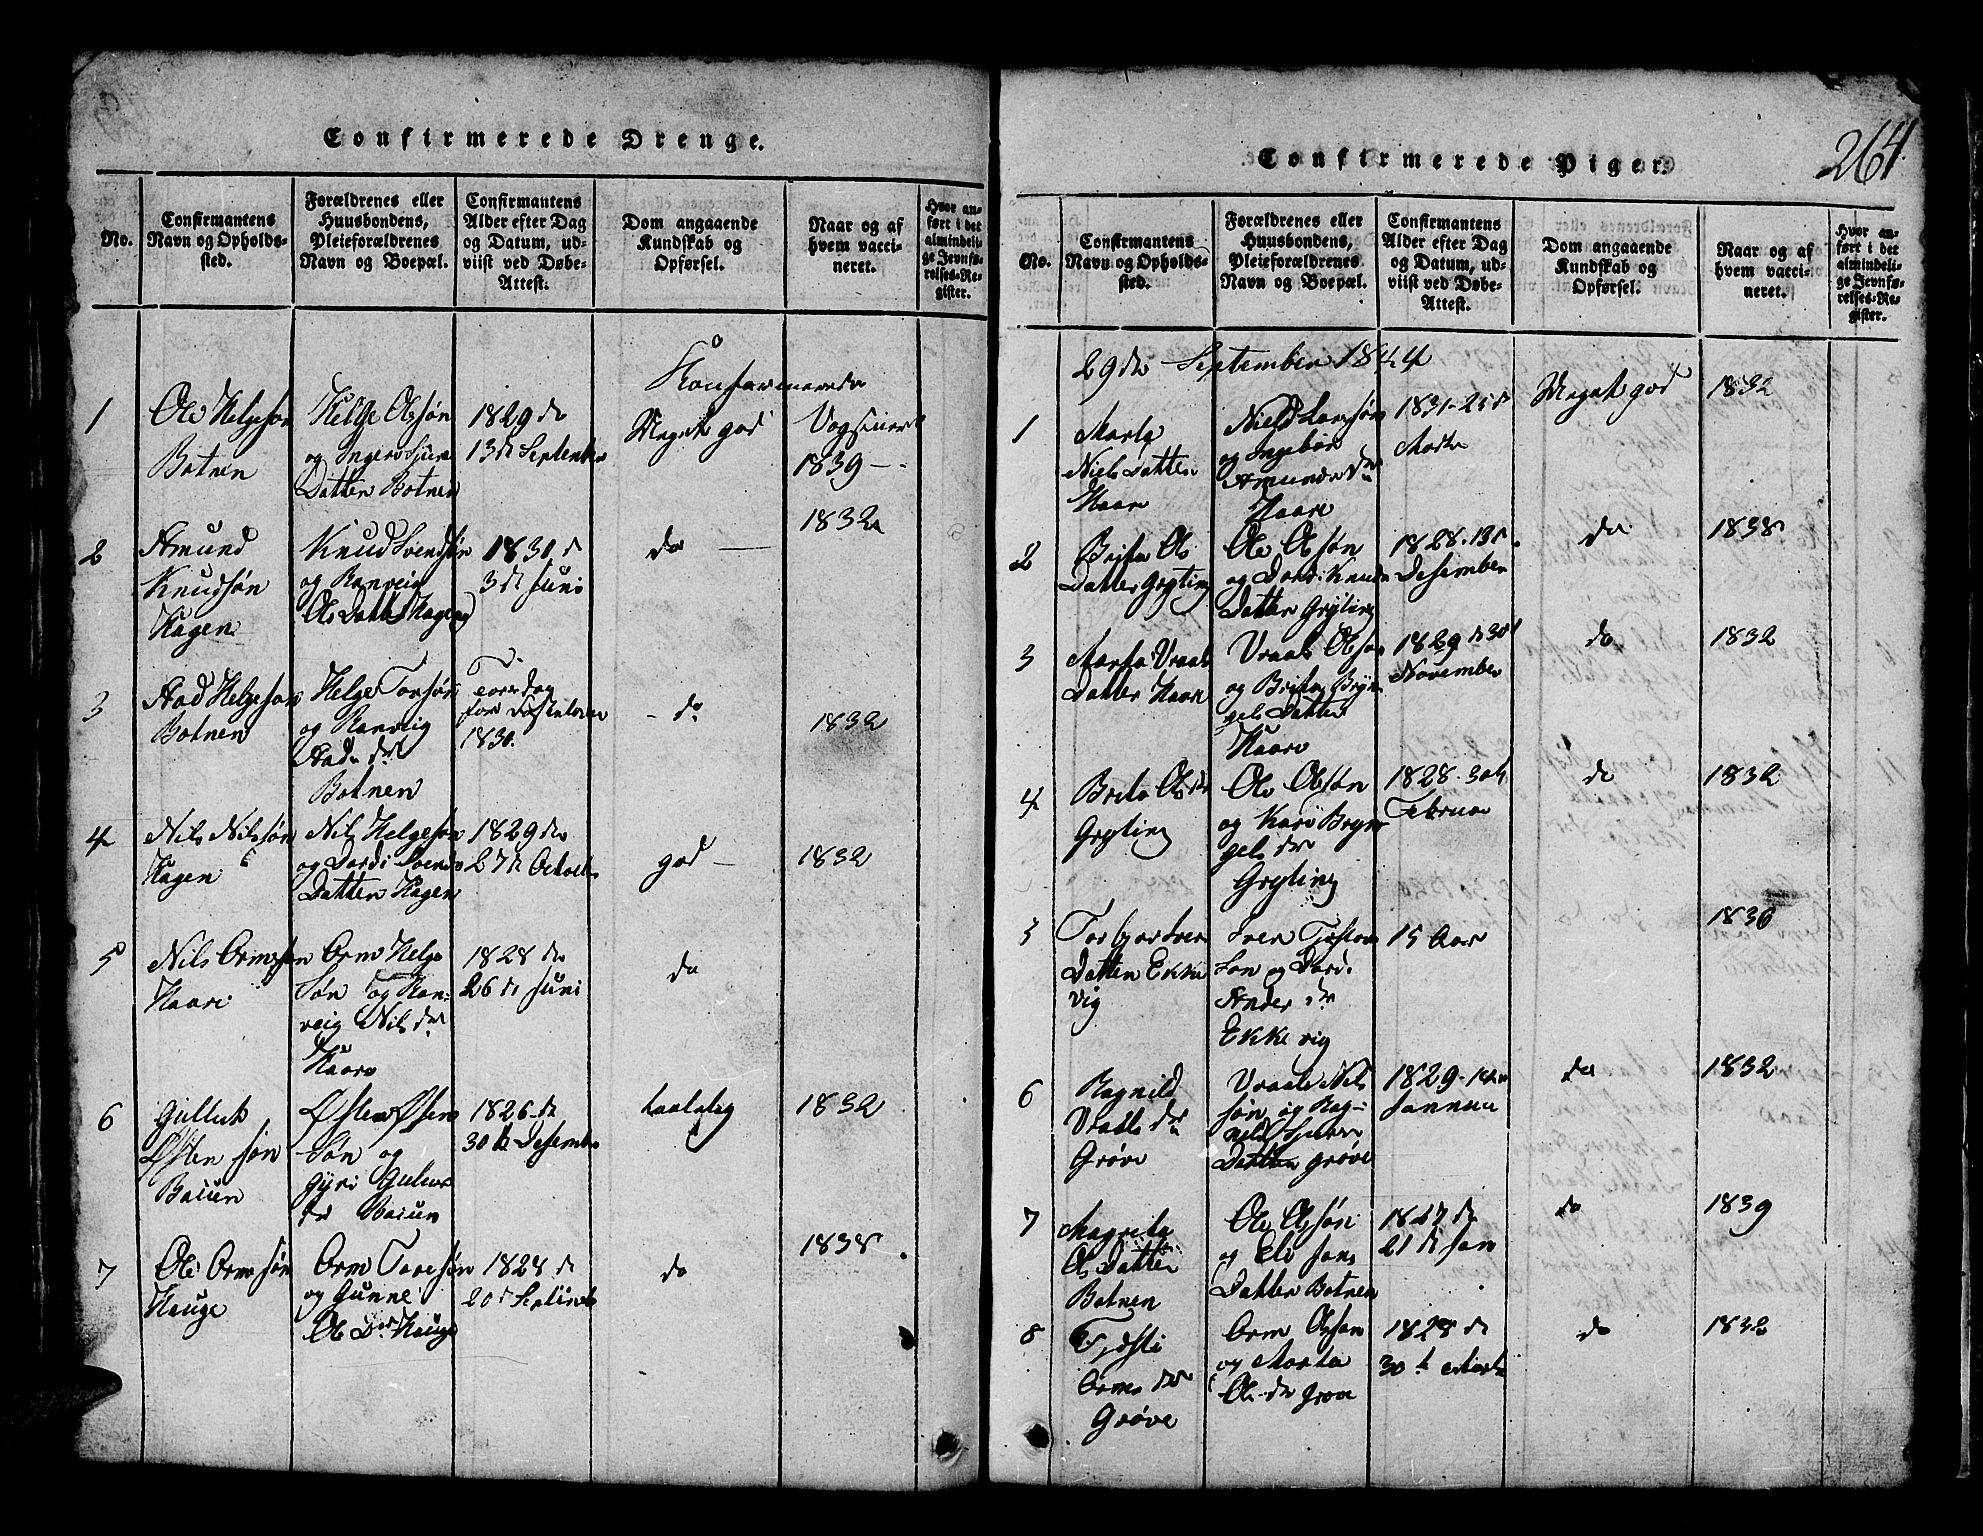 Confirmerede Drenge.
No.
Confirmantens
Navn og Opholds-
sted.
Forældrenes eller
Huusbondens,
Pleieforældrenes
Navn og Boepæl.
Confirmantens
Alder efter Dag
og Datum, ud-
viist ved Døbe-
Attest.
Dom angaaende
Kundskab og
Opførsel.
Naar og af
hvem vacci-
neret.
Hvor an-
ført i det
almindeli-
ge Jevnfø-
relses-Re-
gister.
1
Ole Helgeson
Botnen
Helge Olsøn
og Inger
Datter Botnen
1829 de
13de September
Meget god
1839
2
Amund
Knudsøn
Hagen
Knud Svendsøn
og Ranveig
Ols Datter Hagen
1831 d
3de Juni
do
1832
3
Aad Helgeson
Botnen
Helge Torsøn
og Ranveig
Aads dr
Botnen
1830.
do
1832
4
Nils Nilsøn
Hagen
Nils Helgesøn
og Dordi Svends
Datter Hagen
1829 de
27de October
god
1832
5
Nils Ormsøn
Haare
Orm Helge
Søn og Ran-
veig Nils dr
Haare
1828 de
26 de Juni
do
6
Gulluk
Østen søn
Baiun
Østen Østen
Søn og
Gyri
dr Baiun
1826 d
30te Desember
taalelig
1832
7
Ole Ormsøn
Hauge
Orm Toresøn
og Gunne
Ole Dr Hauge
1828 d
20 d Septimb
do
1838
264
Confirmerede Piger.
No.
Confirmantens
Navn og Opholds-
sted.
Forældrenes eller
Huusbondens,
Pleieforældrenes
Navn og Boepæl.
Confirmantens
Alder efter Dag
og Datum, ud-
viist ved Døbe-
Attest.
Dom angaaende
Kundskab og
Opførsel.
Naar og af
hvem vacci-
neret.
Hvor an-
ført i det
almindeli-
ge Jevnfø-
relses-Re-
gister.
29de September 1844
1
Marta
Niels Datter
Haare
Niels Larsøn
og Ingebør
Amunds dr
Haare
1831-25 d
Marts
Meget god
1832
2
Brita Ols
Datter Gryting
Ole Olsøn
og Dordi Knuds
Datter Gryting
1828-13 d
Desember
do
1838
3
Marta Vraals
Datter Haare
Vraal Olson
og Brita Bryn
gels Datter
Haare
1829 d 30
November
do
1832
4
Brita Ols dr
Gryting
Ole Olsøn
og Kari Bryn
gels dr
Gryting
1828-30te
Februar
do
1832
5
Torbjør Sven
Datter Ekke
vig
Sven
Søn og Dordi
Anders dr
Ekkevig
15 Aar
1836
6
Ragnild
Vraals dr
Grøve
Vraale Nils
søn og Rag-
nild
Datter Grøve
1829
Januar
do
1832
7
Magrita
Ols Datter
Botnen
Ole Olsøn
og Eli Jans
Datter Botnen
1827 de
21 de Jan
do
1839
8
Orms dr
Grøve
Orm Olson
og Marta
Ole dr Grove
1828 d
30 te Marts
do
1832